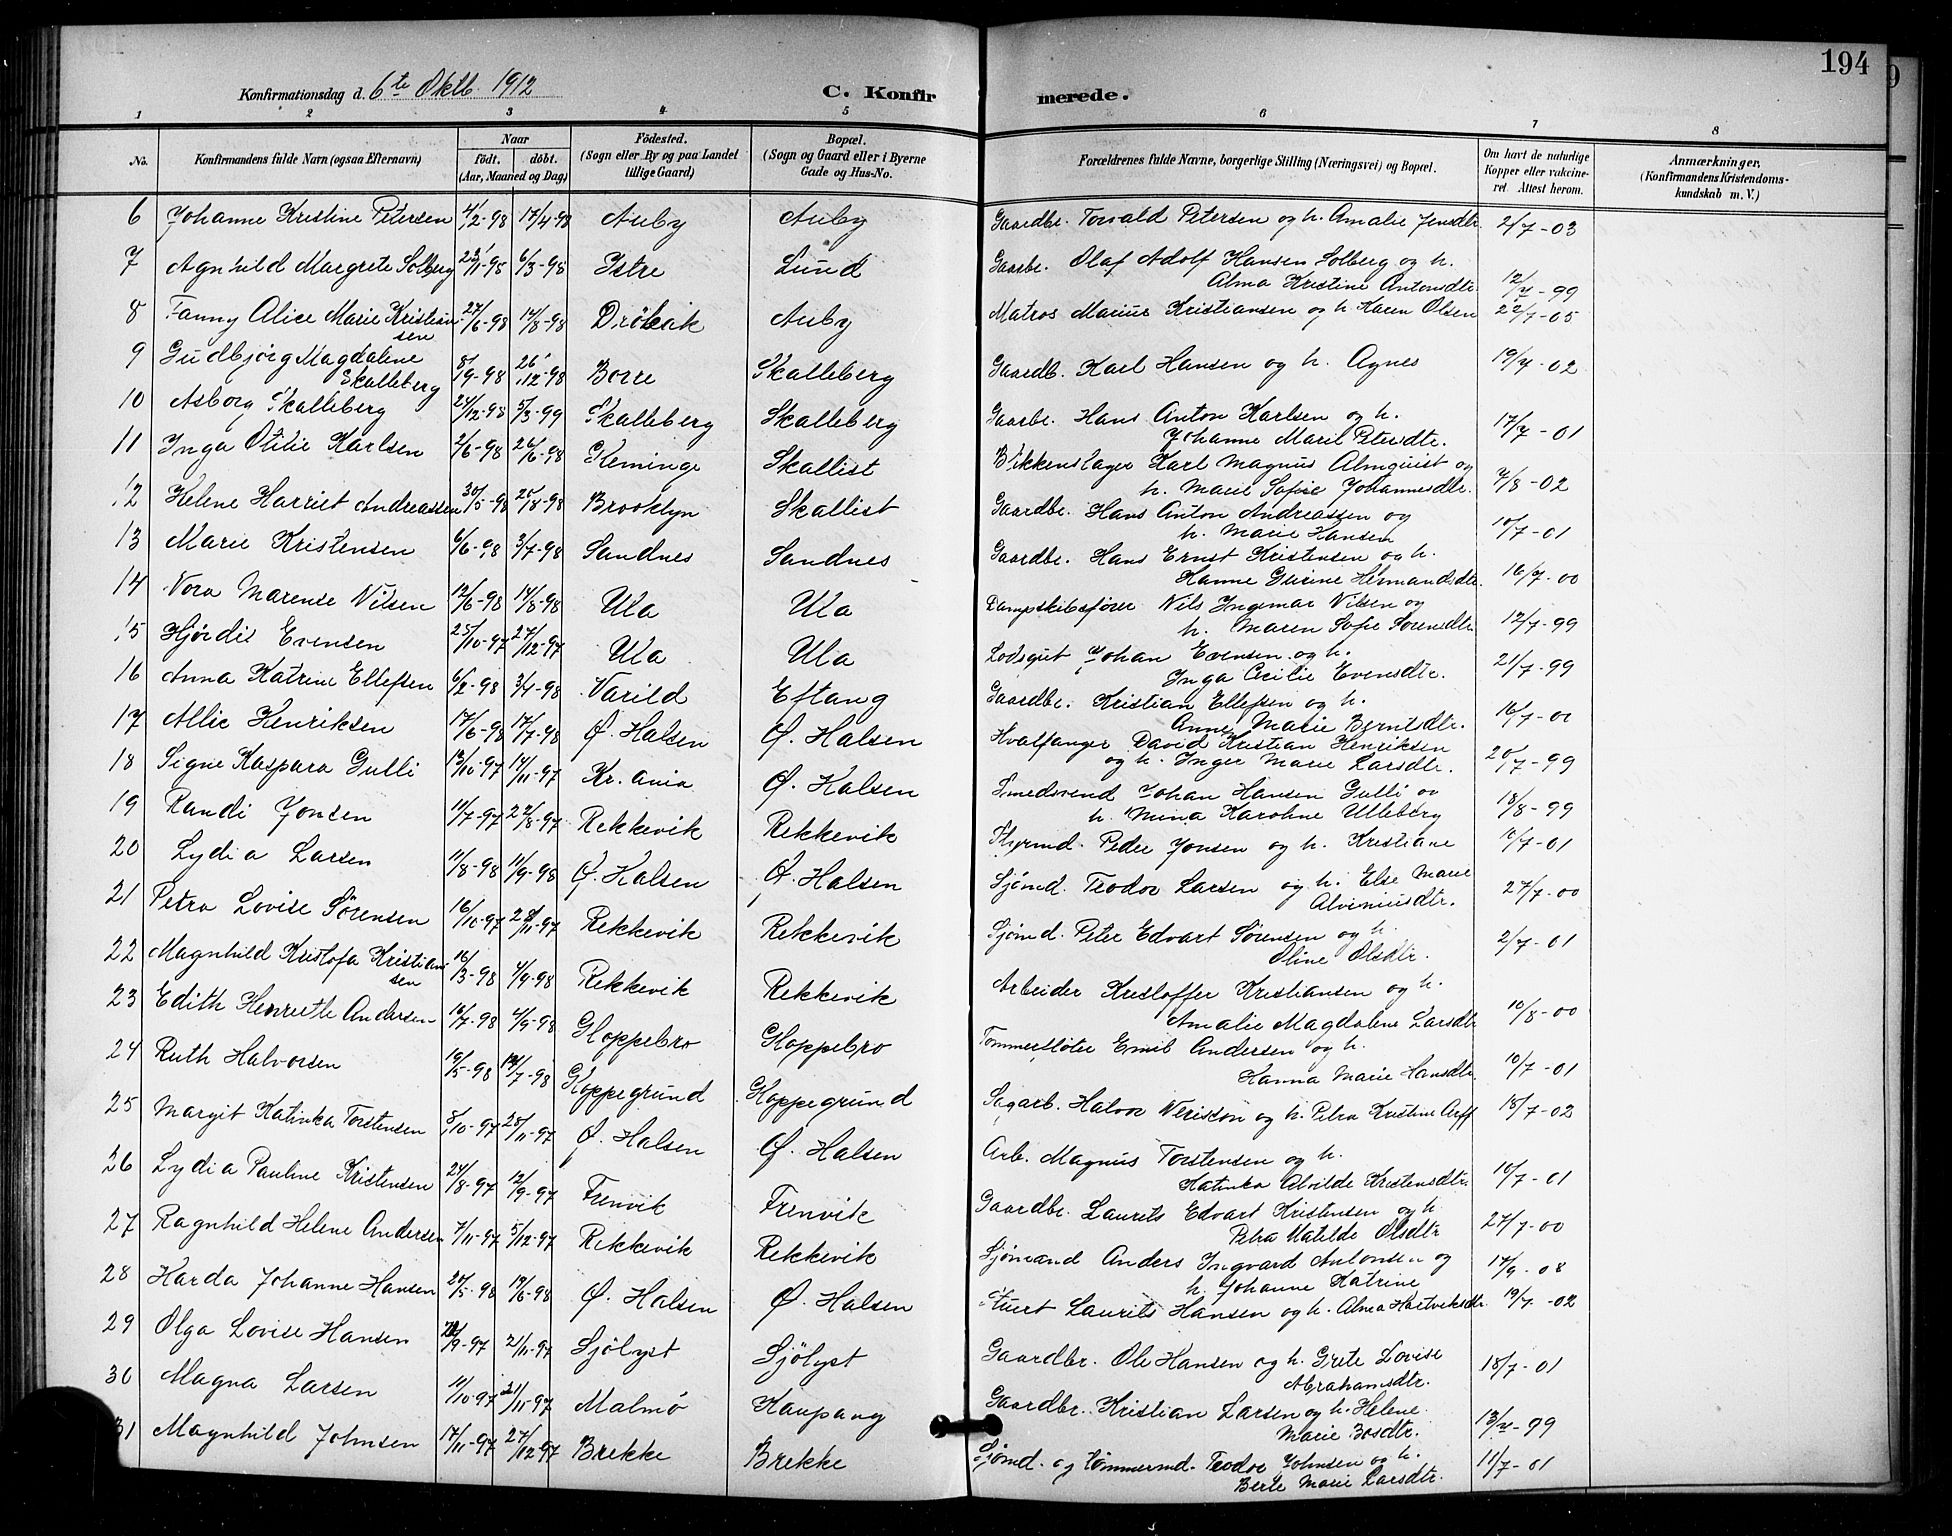 194
Konfirmationsdag d. 6te Oktb. 1912
C. Konfirmerede.
1 2 3 4 5 6 7 8
No. Konfirmandens fulde Navn (ogsaa Efternavn) Naar födt. döbt. (Aar, Maaned og Dag) Födested. (Sogn eller By og paa Landet tillige Gaard) Bopæl. (Sogn og Gaard eller i Byerne Gade og Hus-No. Forældrenes fulde Navne, borgerlige Stilling (Næringsvei) og Bopæl. Om havt de naturlige Kopper eller vakcineret. Attest herom. Anmærkninger, (Konfirmandens Kristendomskundskab m. V.)
6 Johanne Kristine Petersen 4/2-98 17/4-98 Auby Auby Gaardbr. Torvald Petersen og h. Amalie Jensdtr. 2/7-03
7 Agnhild Margrete Solberg 23/1-98 6/3-98 Istre Lund Gaarbr. Olaf Adolf Hansen Solberg og h.
Alma Kristine Antonsdtr. 12/7-99
8 Fanny Alice Marie Kristiansen 27/6-98 14/8-98 Dröbak Auby Matros Marius Kristiansen og h. Karen Olsen 22/7-05
9 Gudbjörg Magdalene
Skalleberg 8/9-98 26/12-98 Borre Skalleberg Gaardb. Karl Hansen og h. Agnes 19/7-02
10 Asborg Skalleberg 24/12-98 5/3-99 Skalleberg Skalleberg Gaarbr. Hans Anton Karlsen og h.
Johanne Marie Petersdtr. 17/7-01
11 Inga Otilie Karlsen 2/6-98 26/6-98 Heminge Skallist Blikkenslager Karl Magnus Almquist og
h. Marie Sofie Johannesdtr. 7/8-02
12 Helene Harriet Andreassen 30/5-98 28/8-98 Brooklyn Skallist Gaardbr. Hans Anton Andreassen og
h. Marie Hansen 10/7-01
13 Marie Kristensen 6/6-98 3/7-98 Sandnes Sandnes Gaardbr. Hans Ernst Kristensen og h.
Hanne Gurine Hermandsdtr. 16/7-00
14 Nora Marense Nilsen 12/6-98 14/8-98 Ula Ula Dampskibsförer Nils Ingemar Nilsen og
h. Maren Sofie Sorensdtr. 12/7-99
15 Hjördis Evensen 25/10-97 27/12-97 Ula Ula Lodsgut Johan Evensen og h.
Inga Cecilie Evensdtr. 21/7-99
16 Anna Katrine Ellefsen 6/2-98 3/4-98 Varild Eftang Gaardbr. Kristian Ellefsen og h.
Anne Marie Berntdtr. 16/7-01
17 Allie Henriksen 17/6-98 17/7-98 Ø. Halsen Ø. Halsen Hvalfanger David Kristian Henriksen
og h. Inger Marie Larsdtr. 20/7-99
18 Signe Kaspara Gulli 13/10-97 14/11-97 Kr.ania Ø. Halsen Smedsvend Johan Hansen Gulli og
h. Mina Karoline Ulleberg 18/8-99
19 Randi Jonsen 11/7-97 22/8-97 Rekkevik Rekkevik Styrmd. Peder Jonsen og h. Kristiane 11/7-01
20 Lydia Larsen 11/8-98 11/9-98 Ø. Halsen Ø. Halsen Sjömd. Teodor Larsen og h. Else Marie
Alviniusdtr. 27/7-00
21 Petra Lovise Sörensen 16/10-97 28/11-97 Rekkevik Rekkevik Sjömd. Peter Edvart Sörensen og h.
Oline Olsdtr. 2/7-01
22 Magnhild Kristofa Kristiansen 16/3-98 4/9-98 Rekkevik Rekkevik Arbeider Kristoffer Kristiansen og h.
Amalie Magdalene Larsdtr 10/8-00
23 Edith Henriette Andersen 16/7-98 4/9-98 Gloppebro Gloppebro Tommerflöter Emil Andersen og h.
Hanna Marie Hansdtr. 10/7-01
24 Ruth Halvorsen 19/5-98 17/7-98 Kloppegrund Kloppegrund Sagarb. Halvor Nerison og h. Petra Kristine Arff 18/7-02
25 Margit Katinka Torstensen 8/10-97 28/11-97 Ø. Halsen Ø. Halsen Arb. Magnus Torstensen og h.
Katinka Alvilde Kristensdtr. 10/7-01
26 Lydia Pauline Kristensen 24/8-97 12/9-97 Frenvik Frenvik Gaardbr. Laurits Edvart Kristensen og h.
Petra Matilde Olsdtr 27/7-00
27 Ragnhild Helene Andersen 7/11-97 5/12-97 Rekkevik Rekkevik Sjömand Anders Ingvard Antonsen og
h. Johanne Katrine 17/9-08
28 Harda Johanne Hansen 24/5-98 19/6-98 Ø. Halsen Ø. Halsen Stuert Laurits Hansen og h. Alma Hartviksdtr. 19/7-02
29 Olga Lovise Hansen 28/9-97 21/11-97 Sjölyst Sjölyst Gaardbr. Ole Hansen og h. Grete Lovise
Abrahamsdtr. 18/7-01
30 Magna Larsen 11/10-97 21/11-97 Malmö Kaupang Gaardbr. Kristian Larsen og h. Helene
Marie Bosdtr. 13/7-99
31 Magnhild Johnsen 17/11-97 27/12-97 Brekke Brekke Sjömd. og tömmermd. Teodor Johnsen og h.
Berte Marie Larsdtr. 11/7-01